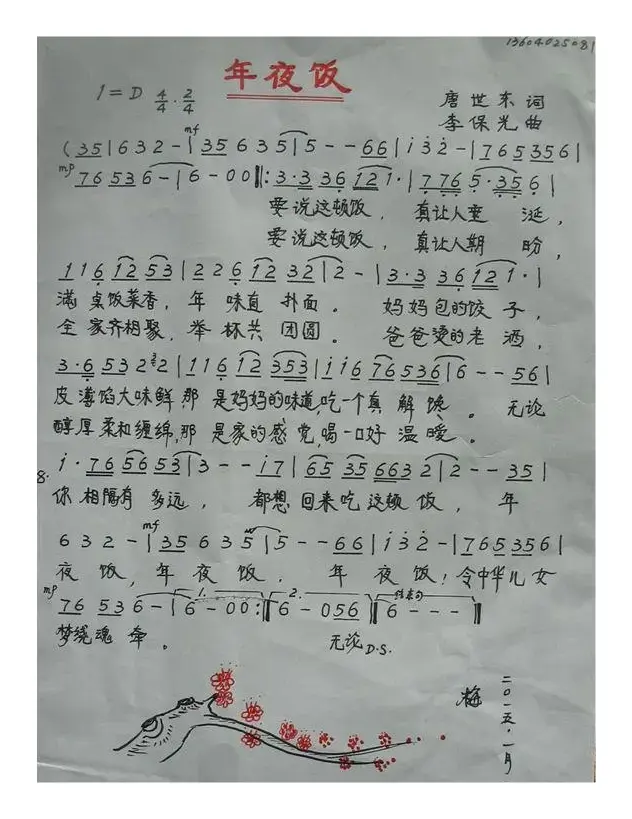 13604025081
年夜饭
1=D 4/4 · 2/4
唐世东 词
李保光 曲
mf
(35|632-|356635|5--66|i32-|765356|
mp
76536-|6-00‖:3·33612 1·|7765·356|
要说这顿饭，真让人垂涎，
要说这顿饭，真让人期盼，
1161253|2261232|2-|3·336121·|
满桌饭菜香，年味直扑面。妈妈包的饺子，
全家齐相聚，举杯共团圆。爸爸烫的老酒，
3·6532|11612353|ii676536|6--56|
皮薄馅大味鲜，那是妈妈的味道，吃一个真解馋。无论
醇厚柔和缠绵，那是家的感觉，喝一口好温暖。
i·765653|3--i7|65356632|2--35|
你相隔有多远，都想回来吃这顿饭，年
mf
632-|35635|5--66|i32-|765356|
夜饭，年夜饭，年夜饭！令中华儿女
mp
1. 2. 结束句
76536-|6-00:‖6-056‖6---‖
梦绕魂牵。无论D.S.
梅
二〇一五·一月